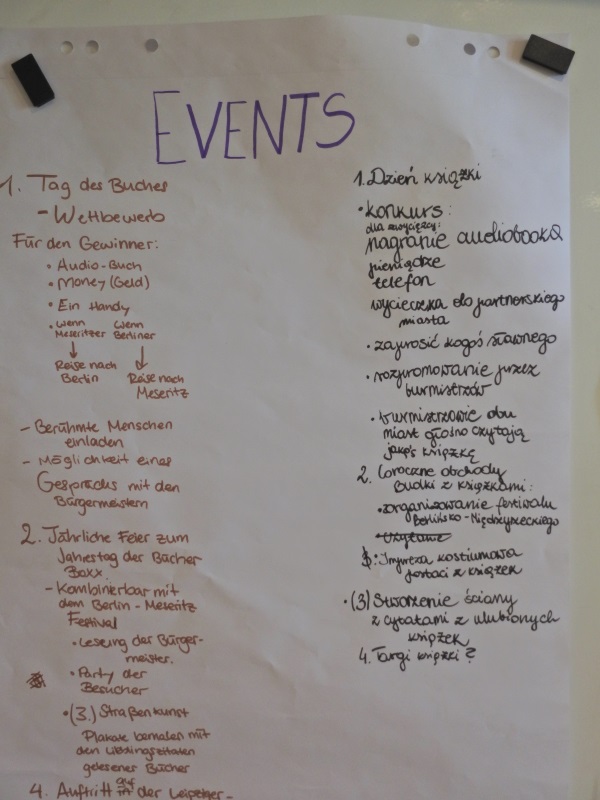 EVENTS
1. Tag des Buches
- Wettbewerb
Für den Gewinner:
• Audio-Buch
• Money (Geld)
• Ein Handy
• Wenn Meseritzer Wenn Berliner
Reise nach Berlin
Reise nach Meseritz
- Berühmte Menschen
einladen
- Möglichkeit eines
Gesprächs mit den
Bürgermeistern
2. Jährliche Feier zum
Jahrestag der Bücher
Boxx.
- Kombinierbar mit
dem Berlin - Meseritz
Festival
• Lesung der Bürger-
meister.
• Party der
Besucher
• (3.) Straßenkunst
Plakate bemalen mit
den Lieblingszitaten
gelesener Bücher
4. Auftritt auf der Leipziger-
1. Dzień książki
• konkurs:
dla zwycięzcy:
nagranie audiobooka
pieniądze
telefon
wycieczka do partnerskiego
miasta
• zaprosić kogoś sławnego
• rozpromowanie przez
burmistrzów
• burmistrzowie obu
miast głośno czytają
jakąś książkę
2. Coroczne obchody
budki z książkami:
• zorganizowanie festiwalu
Berlińsko-Międzyrzeckiego
Impreza kostiumowa
postaci z książek
• (3) Stworzenie ściany
z cytatami z ulubionych
książek
4. Targi książki?